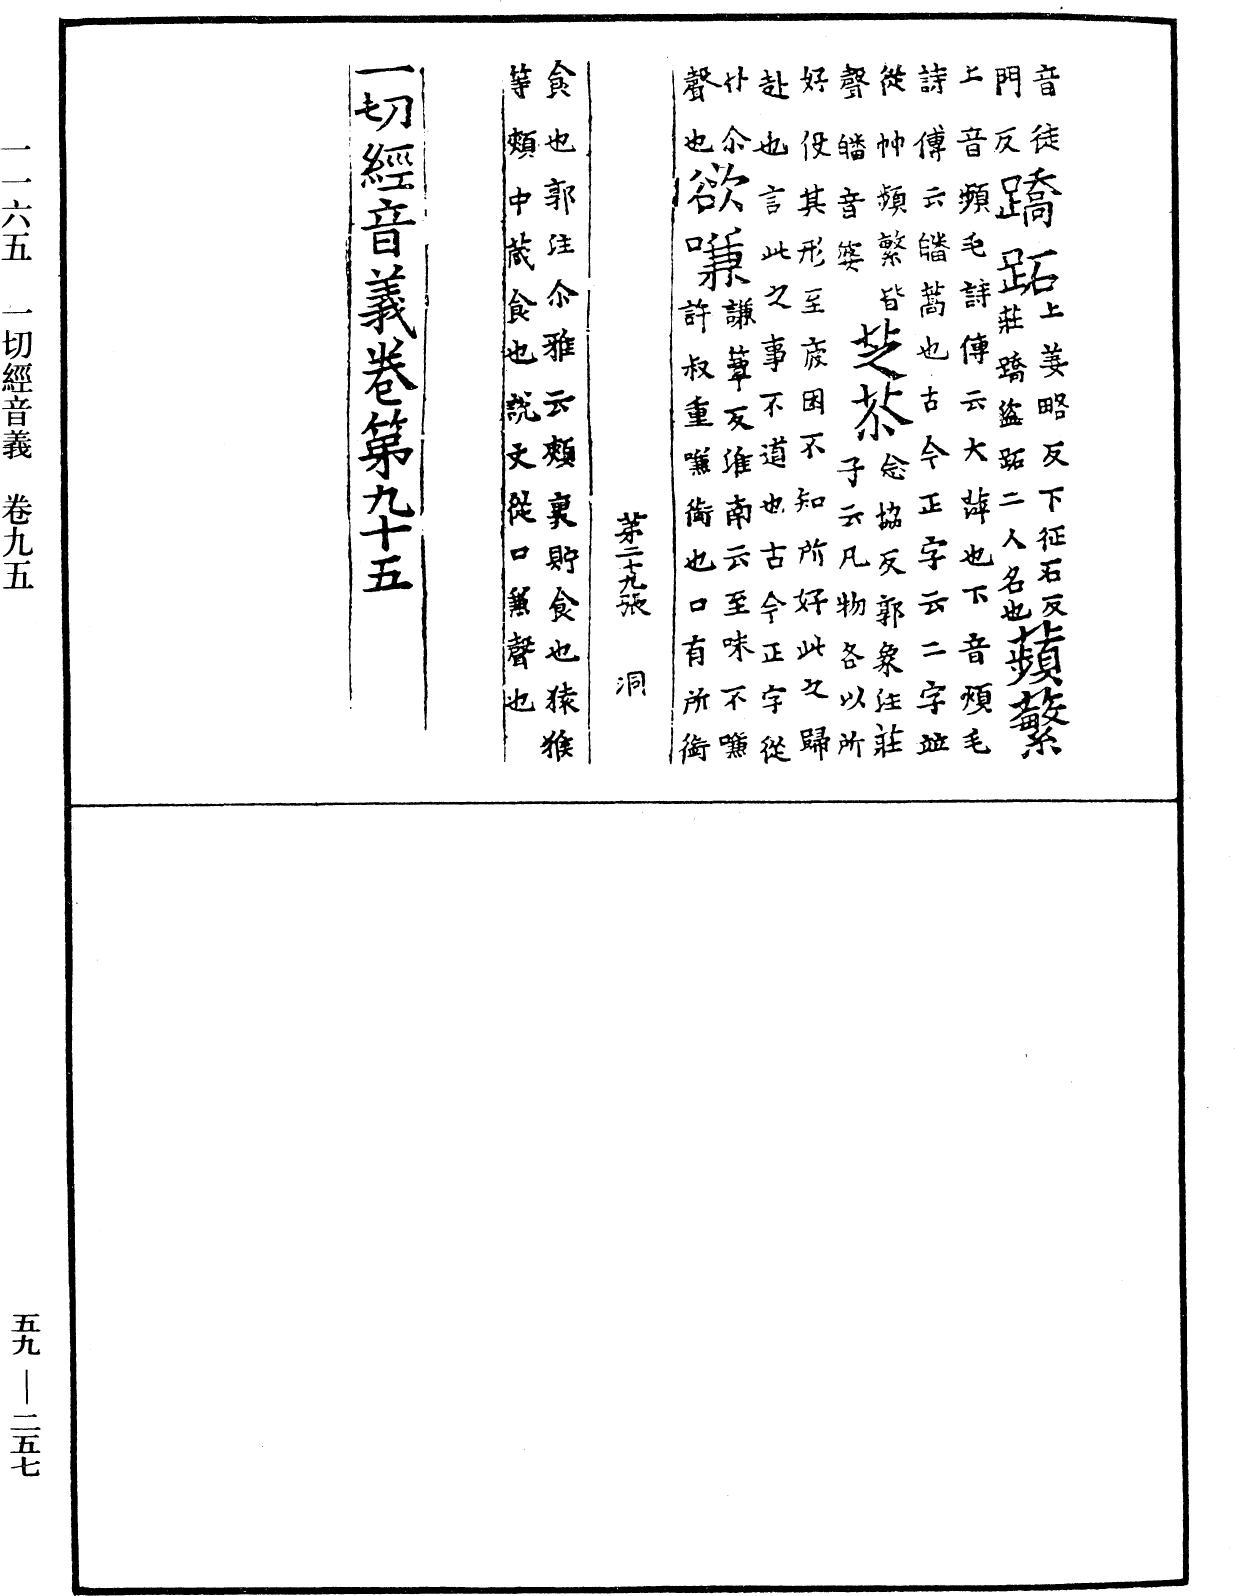 音徒
門反
蹻跖
上姜略反下征石反
莊蹻盜跖二人名也
蘋蘩
上音頻毛詩傳云大蓱也下音煩毛
詩傳云皤蒿也古今正字云二字並
從艸頻繁皆
聲皤音婆
芝苶
念協反郭象注莊
子云凡物各以所
好役其形至疲困不知所好此之歸
赴也言此之事不道也古今正字從
什尒
聲也
欲嗛
謙葦反淮南云至味不嗛
許叔重嗛銜也口有所銜
第二十九張 洞
食也郭注尒雅云頰裏貯食也猿猴
等頰中藏食也說文從口兼聲也
一切經音義卷第九十五
一一六五 一切經音義 卷九五
五九—二五七